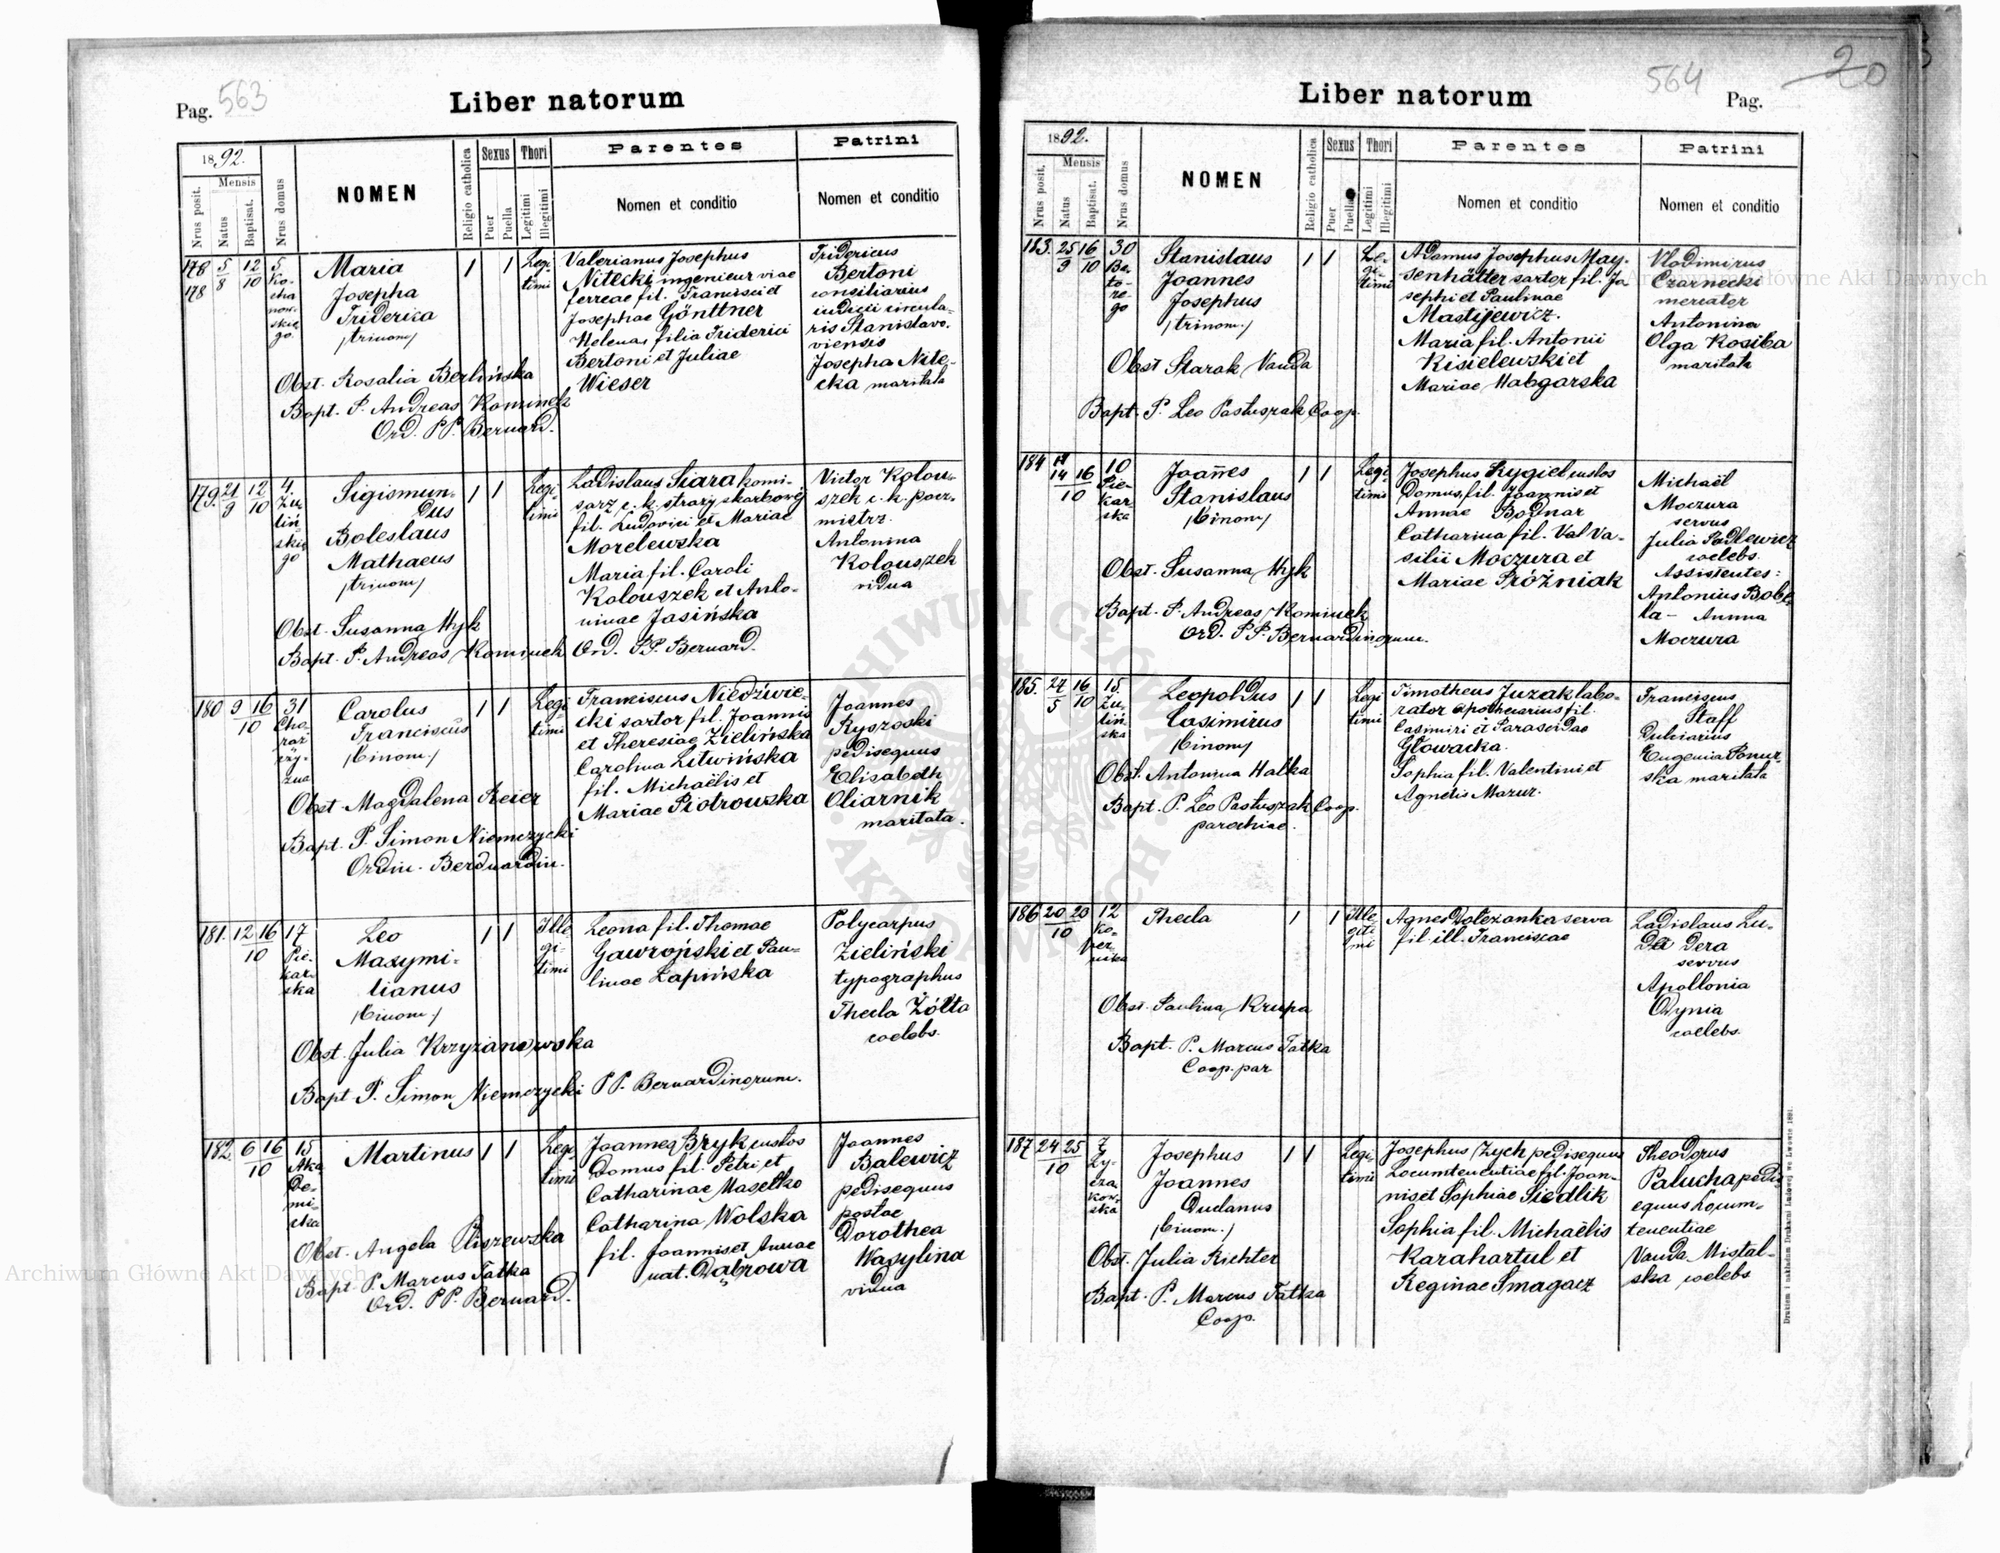 Pag. 563
Liber natorum
1892.
Mensis
Nrus posit.
Natus
Baptisat.
Nrus domus
NOMEN
Religio catholica
Sexus
Puer
Puella
Thori
Legitimi
Illegitimi
Parentes
Nomen et conditio
Patrini
Nomen et conditio
178
178
5
8
12
10
5
Ko-
cha
now-
skie
go.
Maria
Josepha
Friderica
/trinom/
Obst. Rosalia Berlińska
Bapt. P. Andreas Kominek
Ord. PP. Bernard.
1
1
Legi-
timi
Valerianus Josephus
Nitecki ingenieur viae
ferreae fil. Francisci et
Josephae Gönttner
Helena, filia Friderici
Bertoni et Juliae
Wieser
Fridericus
Bertoni
consiliarius
iudicii circula-
ris Stanislavo-
viensis
Josepha Nite-
cka maritata
179.
21
9
12
10
4
Zu-
liń-
skie
go
Sigismun-
dus
Boleslaus
Mathaeus
/trinom/
Obst. Susanna Hyk
Bapt. P. Andreas Kominek Ord. P.P. Bernard.
1
1
Legi-
timi
Ladislaus Siara komi-
sarz c. k. straży skarbowej
fil. Ludovici et Mariae
Morelewska
Maria fil. Caroli
Kolouszek et Anto-
ninae Jasińska
Victor Kolou-
szek c. k. pocz-
mistrz.
Antonina
Kolouszek
vidua
180
9 16
10
31
Cho-
rąż
czy-
zna
Carolus
Franciscus
/binom./
Obst. Magdalena Reier
Bapt. P. Simon Niemczycki
Ordin. Berduardin.
1
1
Legi
timi
Franciscus Niedźwie-
cki sartor fil. Joannis
et Theresiae Zielińska
Carolina Litwińska
fil. Michaëlis et
Mariae Piotrowska
Joannes
Ryszoski
pedisequus
Elisabeth
Oliarnik
maritata.
181.
12 16
10
17
Pie-
kar-
ska
Leo
Maxymi-
lianus
/binom./
Obst. Julia Krzyżanowska
Bapt. P. Simon Niemczycki PP. Bernardinorum.
1
1
Ille
gi-
timi
Leona fil. Thomae
Gawroński et Pau-
linae Łapińska
Polycarpus
Zieliński
typographus
Thecla Żółta
coelebs.
182.
6 16
10
15
Aka
De-
mi-
cka
Martinus
Obst. Angela Pliszewska
Bapt. P. Marcus Fatka
Ord. PP. Bernard.
1
1
Legi-
timi
Joannes Bryk custos
Domus fil. Petri et
Catharinae Masełko
Catharina Wolska
fil. Joannis et Annae
nat. Dąbrowa
Joannes
Balewicz
pedisequus
postae
Dorothea
Wasylina
vidua
564
Liber natorum
Pag. 20
1892.
Mensis
Nrus posit.
Natus
Baptisat.
Nrus domus
NOMEN
Religio catholica
Sexus
Puer
Puella
Thori
Legitimi
Illegitimi
Parentes
Nomen et conditio
Patrini
Nomen et conditio
183.
25
9
16
10
30
Ba-
to-
re-
go
Stanislaus
Joannes
Josephus
/trinom./
Obst Starak Vanda
Bapt. P. Leo Pastuszak Coop.
1
1
Le-
gi-
timi
Adamus Josephus May-
senhälter sartor fil. Jo
sephi et Paulinae
Mastijewicz.
Maria fil. Antonii
Kisielewski et
Mariae Habgarska
Vlodimirus
Czarnecki
mercator
Antonina
Olga Kosiba
maritata
184
14 16
10
10
Pie-
kar-
ska
Joannes
Stanislaus
/binom/
Obst. Susanna Hyk
Bapt. P. Andreas Kominek
Ord. P.P. Bernardinorum.
1
1
Legi-
timi
Josephus Rygiel custos
Domus, fil. Joannis et
Annae Bodnar
Catharina fil. Val Va-
silii Moczura et
Mariae Próżniak
Michaël
Moczura
servus
Julia Sadlewicz
coelebs.
Assistentes:
Antonius Bobe-
la - Anna
Moczura
185.
24
5
16
10
15.
Zu-
liń-
ska
Leopoldus
Casimirus
/binom/
Obst. Antonina Halka
Bapt. P. Leo Pastuszak Coop.
parochiae.
1
1
Legi
timi
Timotheus Juzak labo-
rator apothecarius fil.
Casimiri et Parascidae
Głowacka.
Sophia fil. Valentini et
Agnetis Mazur.
Franciscus
Staff
Dulciarius
Eugenia Ponur-
ska maritata
186
20 20
10
12
Ko-
per-
nika
Thecla
Obst. Paulina Krupa
Bapt. P. Marcus Fatka
Coop. par
1
1
Ille-
giti
mi
Agnes Dolezanka serva
fil ill. Franciscae
Ladislaus Lu-
Da Dera
servus
Apollonia
Dynia
coelebs.
187
24 25
10
7
Ły-
cza
kow-
ska
Josephus
Joannes
Duclanus
/binom./
Obst. Julia Richter
Bapt. P. Marcus Fatka
Coop.
1
1
Legi-
timi
Josephus Zych pedisequus
Locumtenentiae fil. Joan-
nis et Sophiae Siedlik
Sophia fil. Michaëlis
Karahartul et
Reginae Smagacz
Theodorus
Palucha pedis
equus Locum-
tenentiae
Vanda Mistal-
ska, coelebs
Drukiem i nakładem Drukarni Ludowej we Lwowie 1891.
Archiwum Główne Akt Dawnych
Archiwum Główne Akt Dawnych
ARCHIWUM GŁÓWNE AKT DAWNYCH